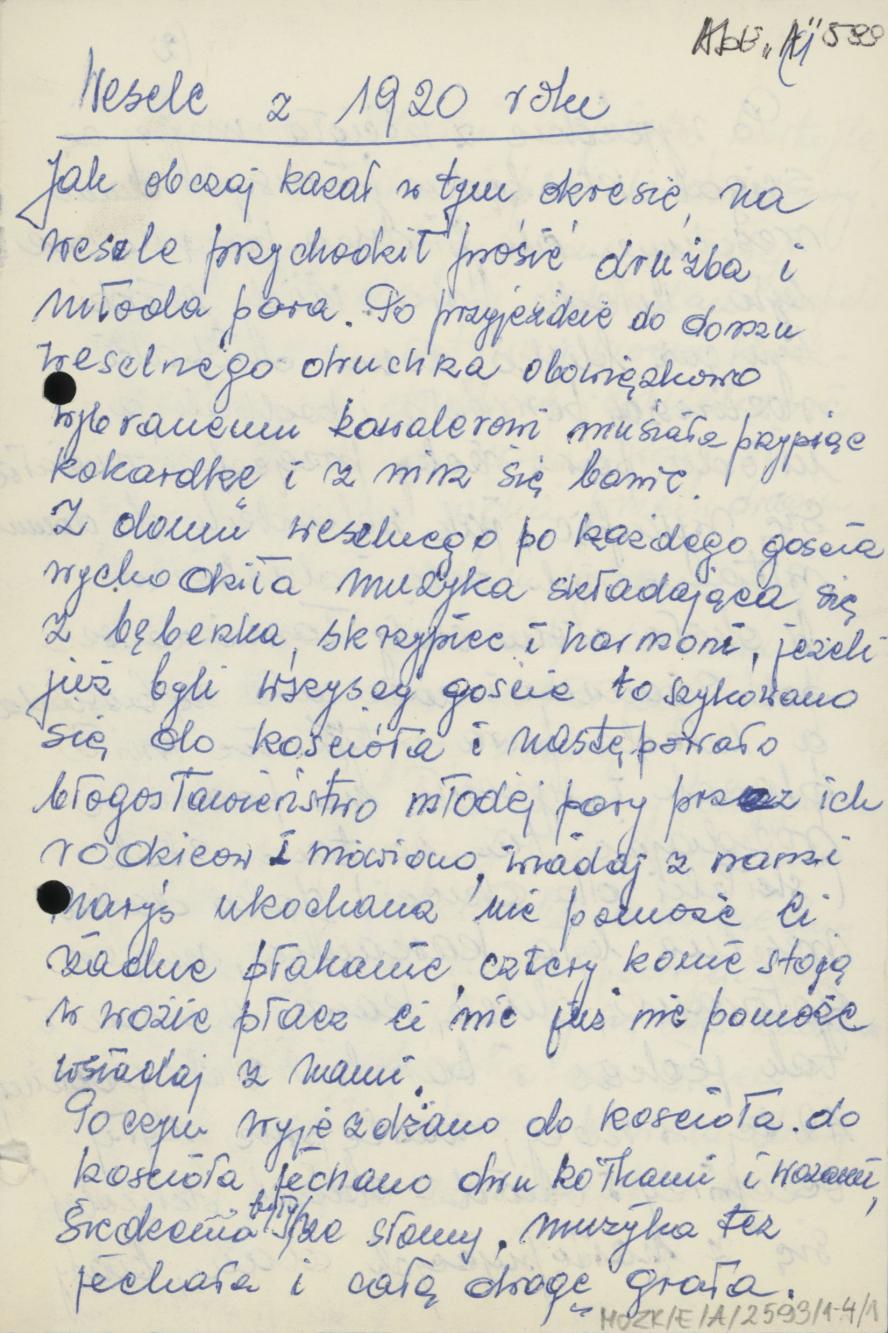 599
Wesele z 1920 roku
Jak obczaj kazał w tym okresie, na
wesele przychodził prosić drużba i
młoda para. Po przyjeździe do domu
weselnego druchna obowiązkowo
wybranemu kawalerowi musiała przypiąc
kokardkę i z nim się bawić.
Z domu weselnego po każdego gościa
wychodziła muzyka składająca się
z bębenka, skrzypiec i harmoni, jeżeli
już byli wszyscy goście to szykowano
się do kościoła i następowało
błogosławieństwo młodej pary przez ich
rodziców i mówiono, wsiadaj z nami
Maryś ukochana nic pomoże Ci
żadne płakanie, cztery konie stoją
w wozie płacz Ci nic już nie pomoże
wsiadaj z nami.
Poczym wyjeżdżano do kościoła. do
kościoła jechano dwukołkami i wozami,
Siedzenia były ze słomy, muzyka też
jechała i całą drogę grała.
MOZK/E/A/2593/1-4/1